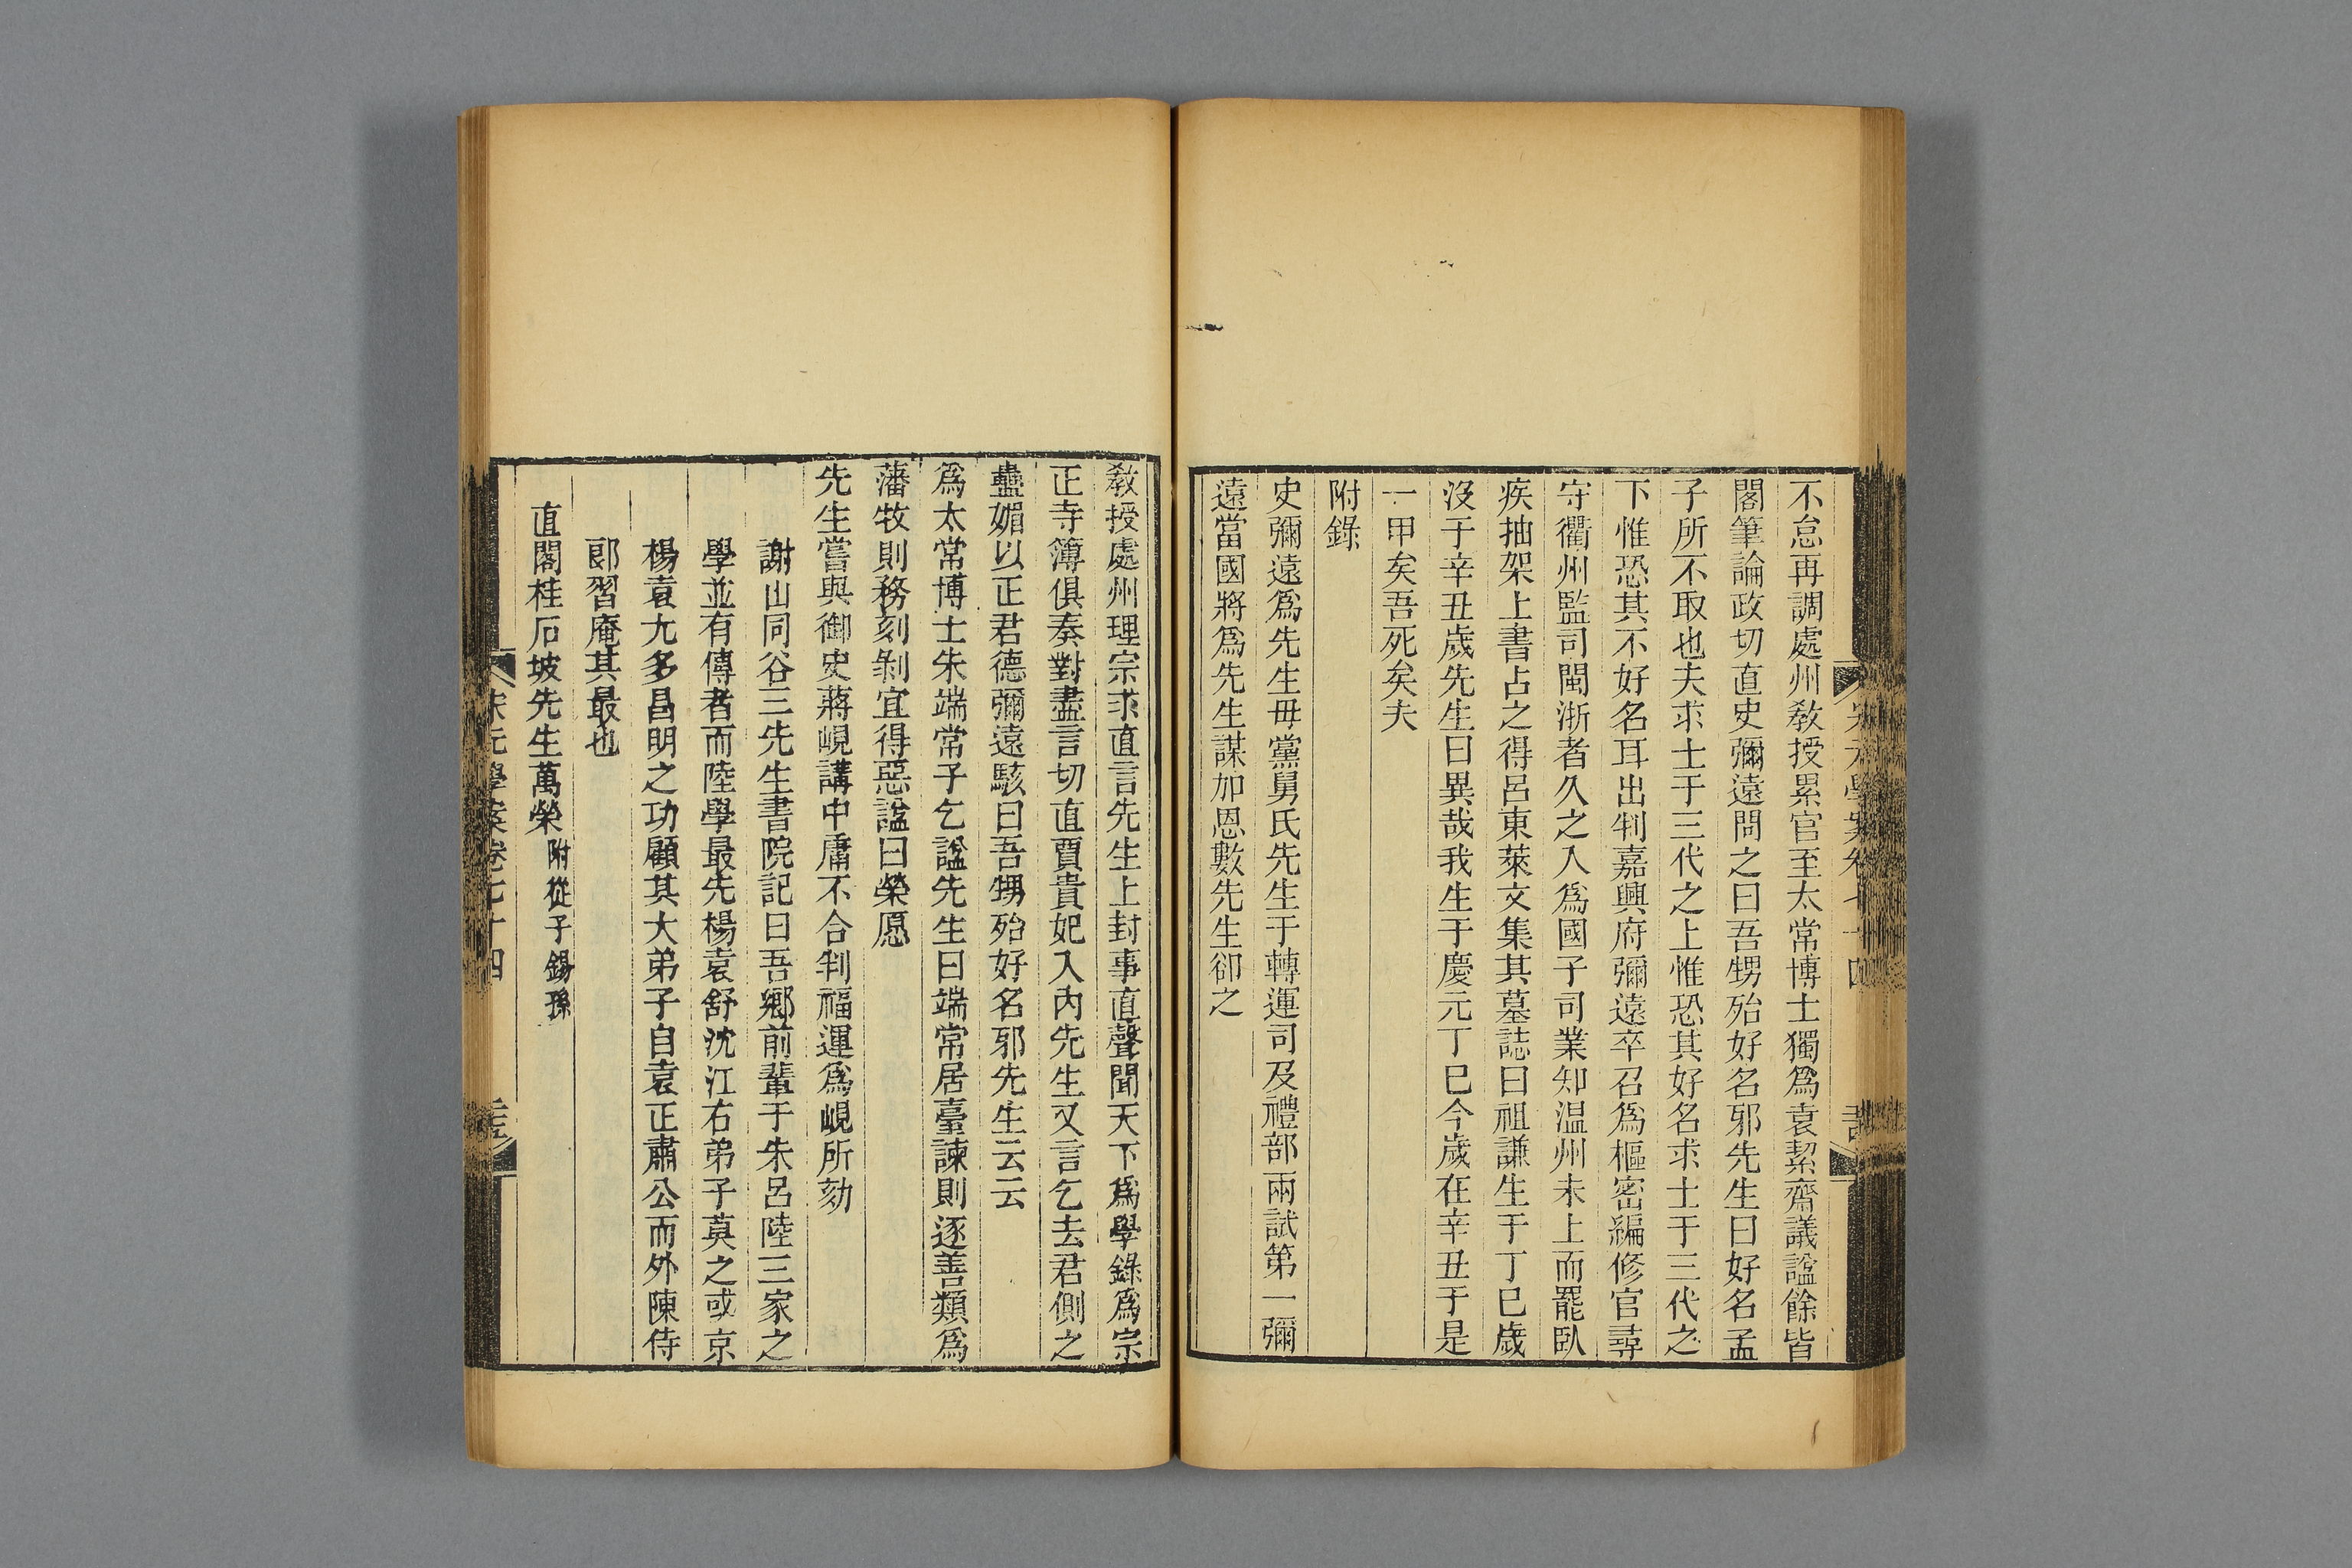 不怠再調處州教授累官至太常博士獨爲袁絜齋議諡餘皆
閣筆論政切直史彌遠問之曰吾甥殆好名邪先生曰好名孟
子所不取也夫求士于三代之上惟恐其好名求士于三代之
下惟恐其不好名耳出判嘉興府彌遠卒召爲樞密編修官尋
守衢州監司閩浙者久之入爲國子司業知溫州未上而罷臥
疾抽架上書占之得呂東萊文集其墓誌曰祖謙生于丁巳歲
沒于辛丑歲先生曰異哉我生于慶元丁巳今歲在辛丑于是
一甲矣吾死矣夫
附錄
史彌遠爲先生母黨舅氏先生于轉運司及禮部兩試第一彌
遠當國將爲先生謀加恩數先生卻之
教授處州理宗求直言先生上封事直聲聞天下爲學錄爲宗
正寺簿俱奏對盡言切直賈貴妃入內先生又言乞去君側之
蠱媚以正君德彌遠駭曰吾甥殆好名邪先生云云
爲太常博士朱端常子乞諡先生曰端常居臺諫則逐善類爲
藩牧則務刻剝宜得惡諡曰榮愿
先生嘗與御史蔣峴講中庸不合判福運爲峴所劾
謝山同谷三先生書院記曰吾鄉前輩于朱呂陸三家之
學並有傳者而陸學最先楊袁舒沈江右弟子莫之或京
楊袁尢多昌明之功顧其大弟子自袁正肅公而外陳侍
郎習庵其最也
直閣桂石坡先生萬榮附從子錫孫
宋元學案卷七十四